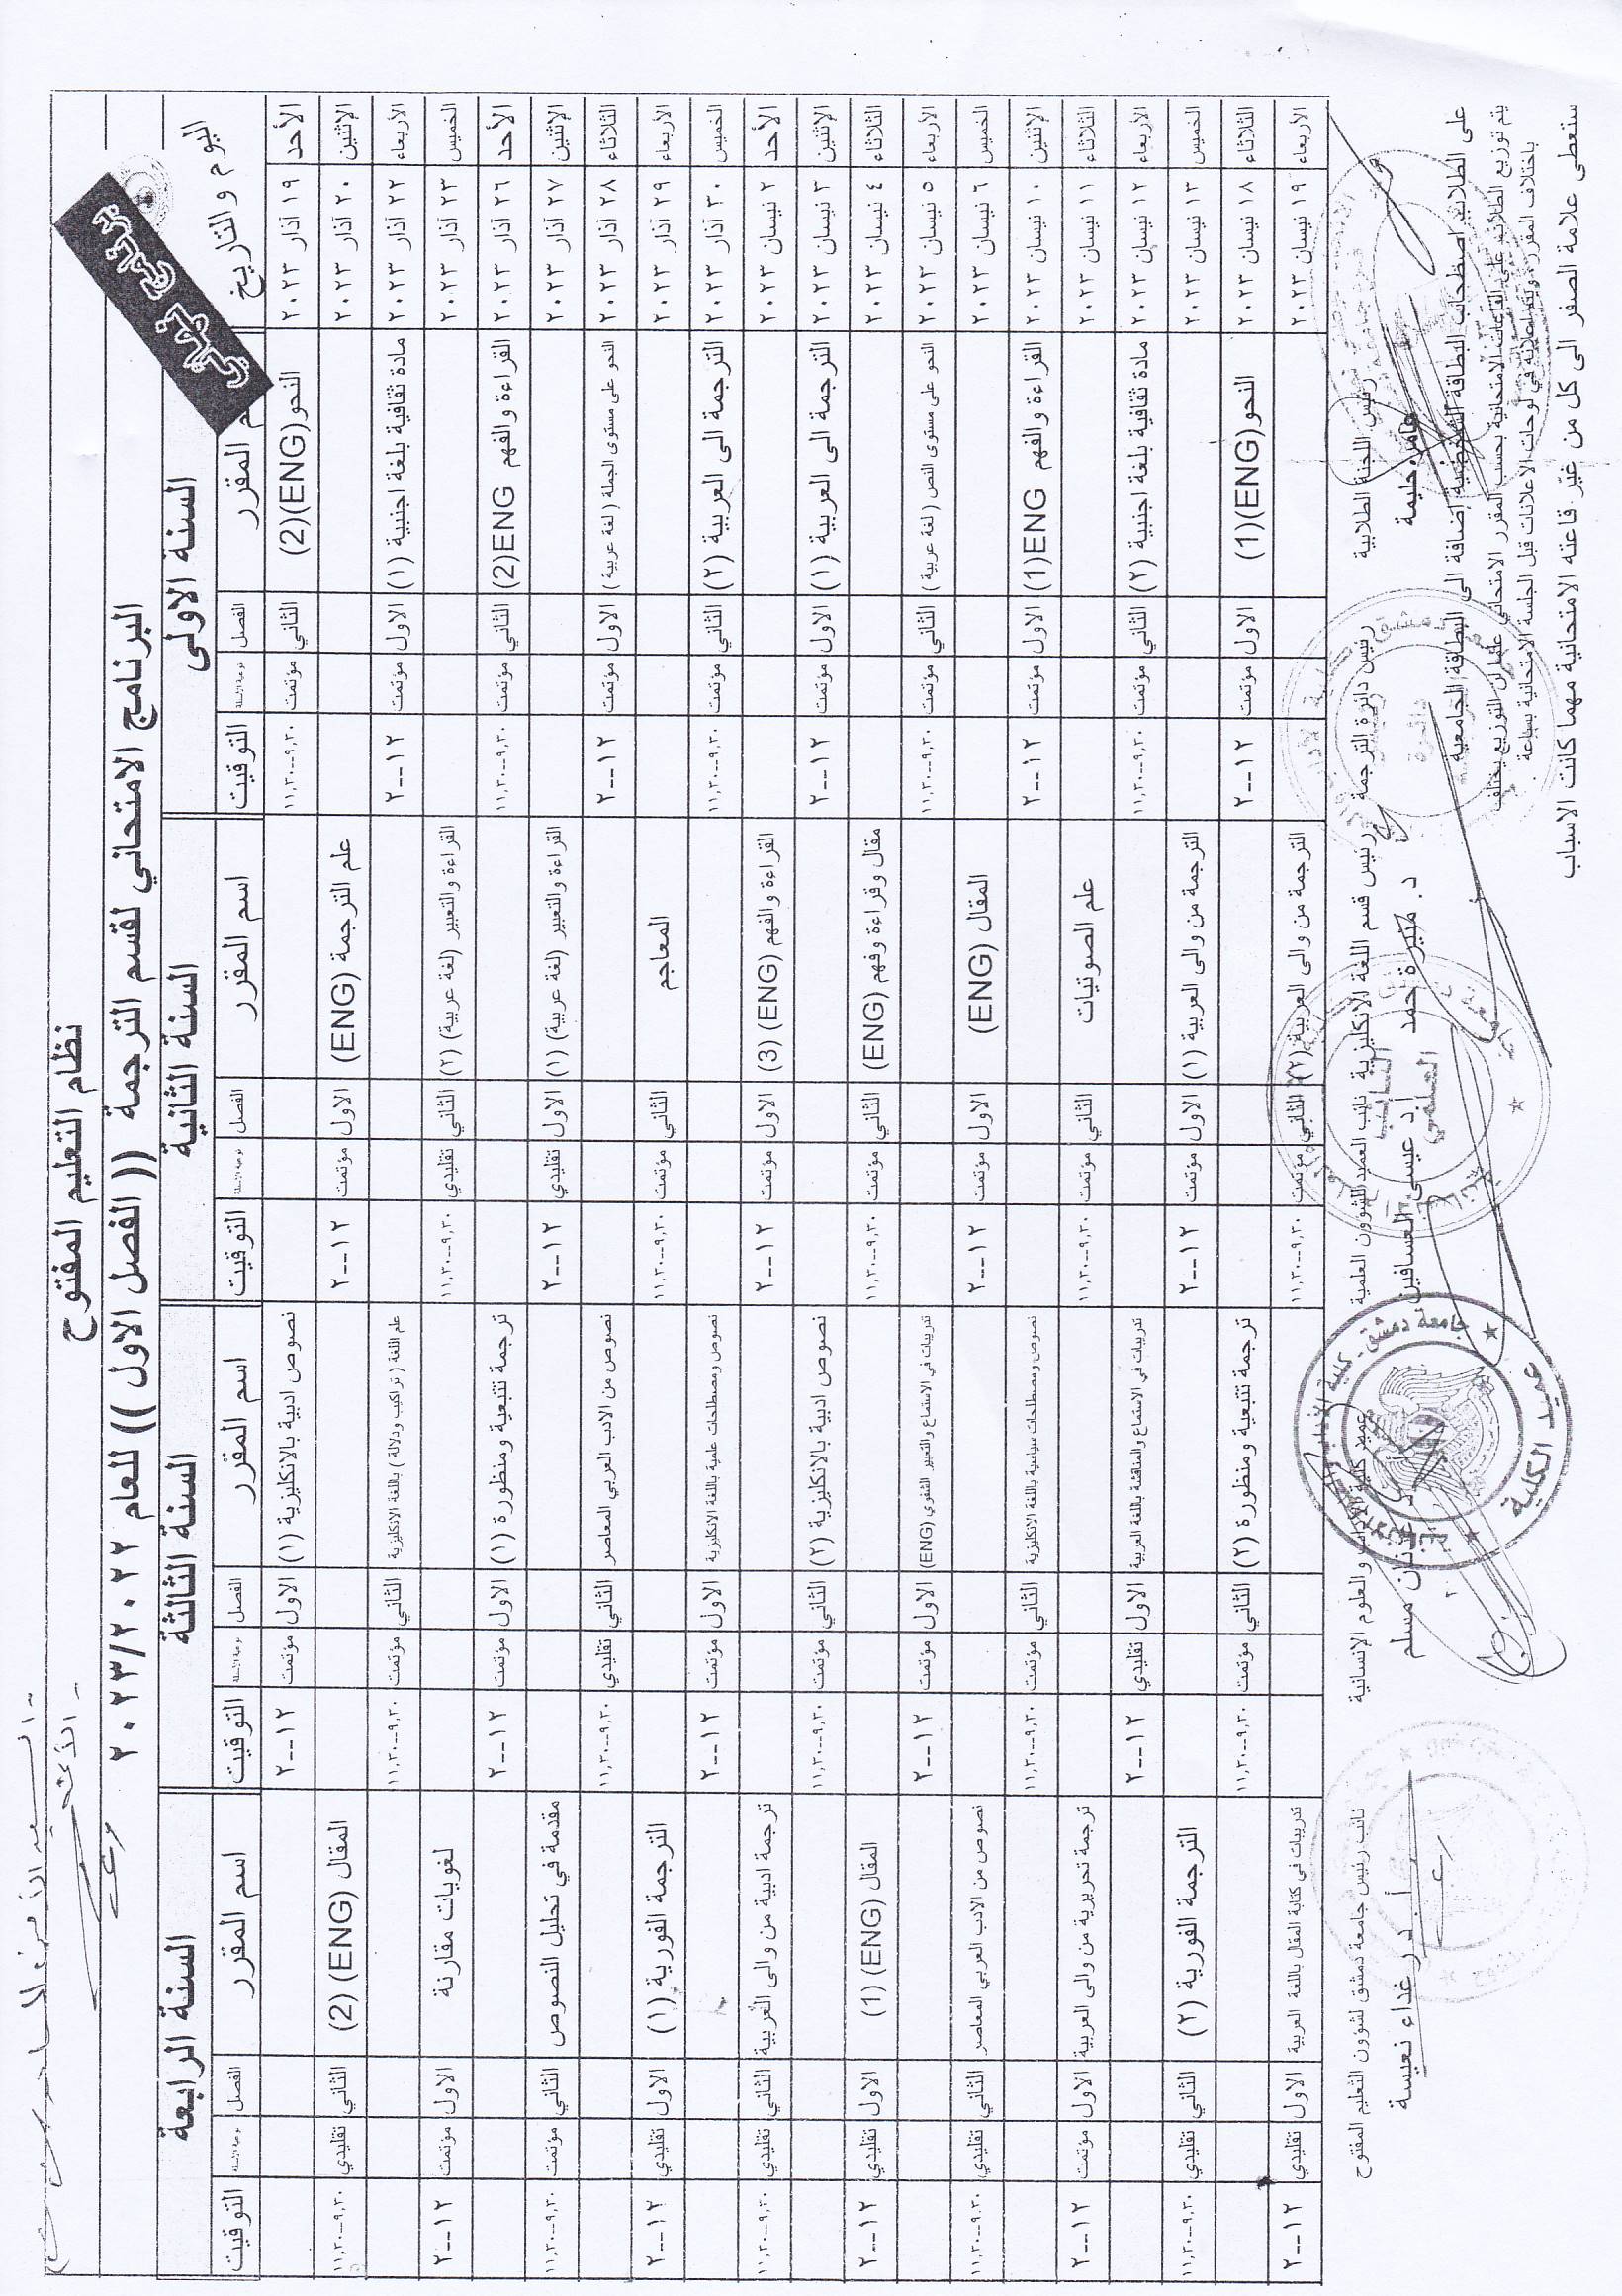 نظام التعليم المفتوح
البرنامج الامتحاني لقسم الترجمة (( الفصل الاول )) للعام ٢٠٢٣/٢٠٢٢
برنامج نهائي
اليوم والتاريخ السنة الاولى السنة الثانية السنة الثالثة السنة الرابعة
المقرر الفصل التوقيت اسم المقرر الفصل التوقيت اسم المقرر الفصل التوقيت اسم المقرر الفصل التوقيت
الأحد ١٩ آذار ٢٠٢٣ النحو(ENG)(2) الثاني مؤتمت ٩,٣٠--١١,٣٠ نصوص ادبية بالانكليزية (١) الاول مؤتمت ١٢--٢
الإثنين ٢٠ آذار ٢٠٢٣ علم الترجمة (ENG) الاول مؤتمت ١٢--٢ المقال (ENG) (2) الثاني تقليدي ٩,٣٠--١١,٣٠
الأربعاء ٢٢ آذار ٢٠٢٣ مادة ثقافية بلغة اجنبية (١) الاول مؤتمت ١٢--٢ علم اللغة ( تراكيب ودلالة ) باللغة الانكليزية الثاني مؤتمت ٩,٣٠--١١,٣٠
الخميس ٢٣ آذار ٢٠٢٣ القراءة والتعبير (لغة عربية) (٢) الثاني تقليدي ٩,٣٠--١١,٣٠ لغويات مقارنة الاول مؤتمت ١٢--٢
الأحد ٢٦ آذار ٢٠٢٣ القراءة والفهم ENG(2) الثاني مؤتمت ٩,٣٠--١١,٣٠ ترجمة تتبعية ومنظورة (١) الاول مؤتمت ١٢--٢
الإثنين ٢٧ آذار ٢٠٢٣ القراءة والتعبير (لغة عربية) (١) الاول تقليدي ١٢--٢ مقدمة في تحليل النصوص الثاني مؤتمت ٩,٣٠--١١,٣٠
الثلاثاء ٢٨ آذار ٢٠٢٣ النحو على مستوى الجملة ( لغة عربية ) الاول مؤتمت ١٢--٢ نصوص من الادب العربي المعاصر الثاني تقليدي ٩,٣٠--١١,٣٠
الأربعاء ٢٩ آذار ٢٠٢٣ المعاجم الثاني مؤتمت ٩,٣٠--١١,٣٠ الترجمة الفورية (١) الاول تقليدي ١٢--٢
الخميس ٣٠ آذار ٢٠٢٣ الترجمة الى العربية (٢) الثاني مؤتمت ٩,٣٠--١١,٣٠ نصوص ومصطلحات علمية باللغة الانكليزية الاول مؤتمت ١٢--٢
الأحد ٢ نيسان ٢٠٢٣ القراءة والفهم (ENG) (3) الاول مؤتمت ١٢--٢ ترجمة ادبية من والى العربية الثاني تقليدي ٩,٣٠--١١,٣٠
الإثنين ٣ نيسان ٢٠٢٣ الترجمة الى العربية (١) الاول مؤتمت ١٢--٢ نصوص ادبية بالانكليزية (٢) الثاني مؤتمت ٩,٣٠--١١,٣٠
الثلاثاء ٤ نيسان ٢٠٢٣ مقال وقراءة وفهم (ENG) الثاني مؤتمت ٩,٣٠--١١,٣٠ المقال (ENG) (1) الاول تقليدي ١٢--٢
الأربعاء ٥ نيسان ٢٠٢٣ النحو على مستوى النص ( لغة عربية ) الثاني مؤتمت ٩,٣٠--١١,٣٠ تدريبات في الاستماع والتعبير الشفوي (ENG) الاول مؤتمت ١٢--٢
الخميس ٦ نيسان ٢٠٢٣ المقال (ENG) الاول مؤتمت ١٢--٢ نصوص من الادب العربي المعاصر الثاني تقليدي ٩,٣٠--١١,٣٠
الإثنين ١٠ نيسان ٢٠٢٣ القراءة والفهم ENG(1) الاول مؤتمت ١٢--٢ نصوص ومصطلحات سياسية باللغة الانكليزية الثاني مؤتمت ٩,٣٠--١١,٣٠
الثلاثاء ١١ نيسان ٢٠٢٣ علم الصوتيات الثاني مؤتمت ٩,٣٠--١١,٣٠ ترجمة تحريرية من والى العربية الاول مؤتمت ١٢--٢
الأربعاء ١٢ نيسان ٢٠٢٣ مادة ثقافية بلغة اجنبية (٢) الثاني مؤتمت ٩,٣٠--١١,٣٠ تدريبات في الاستماع والمناقشة باللغة العربية الاول تقليدي ١٢--٢
الخميس ١٣ نيسان ٢٠٢٣ الترجمة من والى العربية (١) الاول مؤتمت ١٢--٢ الترجمة الفورية (٢) الثاني تقليدي ٩,٣٠--١١,٣٠
الثلاثاء ١٨ نيسان ٢٠٢٣ النحو(ENG)(1) الاول مؤتمت ١٢--٢ ترجمة تتبعية ومنظورة (٢) الثاني مؤتمت ٩,٣٠--١١,٣٠
الأربعاء ١٩ نيسان ٢٠٢٣ الترجمة من والى العربية (٢) الثاني مؤتمت ٩,٣٠--١١,٣٠ تدريبات في كتابة المقال باللغة العربية الاول تقليدي ١٢--٢
رئيس اللجنة الطلابية رئيس دائرة الترجمة رئيس قسم اللغة الانكليزية نائب العميد للشؤون العلمية عميد كلية الآداب والعلوم الإنسانية نائب رئيس جامعة دمشق لشؤون التعليم المفتوح
عامر حليمة د. منيرة حمد أ.د عيسى العسافين عدنان مسلم أ.د. غداء نعيسة
على الطلاب اصطحاب البطاقة الشخصية إضافة الى البطاقة الجامعية
يتم توزيع الطلاب على القاعات الامتحانية بحسب المقرر الامتحاني علما ان التوزيع يختلف
باختلاف المقرر ويتم اعلانه في لوحات الاعلانات قبل الجلسة الامتحانية بساعة .
ستعطى علامة الصفر الى كل من غير قاعته الامتحانية مهما كانت الاسباب
جامعة دمشق - كلية الآداب
عميد الكلية
النائب العلمي